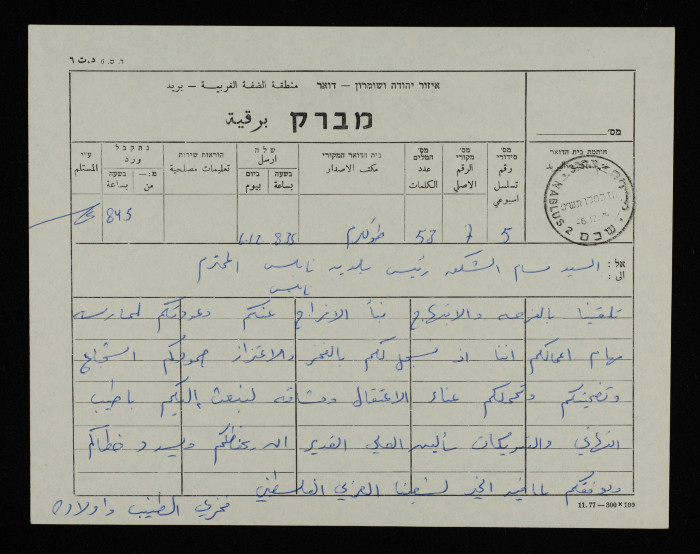 ד. ש. 6 د.ت ٦
איזור יהודה ושומרון – דואר منطقة الضفة الغربية – بريد
מברק برقية
מס'
ע"י المستلم
נתקבל ورد
מ:– من
בשעה بساعة
הוראות שידות تعليمات مصلحية
שלה ارسل
ביום بيوم
בשעה بساعة
בית הדואר המקורי مكتب الاصدار
מס' המלים عدد الكلمات
מס' מקורי الرقم الاصلي
מס' סידורי رقم تسلسل اسبوعي
חותמת בית הדואר
845
6.12 835
طولكرم
53
7
5
NABLUS 2 שכם
אל: الى:
السيد بسام الشكعه رئيس بلدية نابلس المحترم
نابلس
تلقينا بالفرحه والابتهاج نبأ الافراج عنكم وعودتكم لممارسه
مهام اعمالكم اننا اذ نسجل لكم بالفخر والاعتزاز صمودكم الشجاع
وتضحيتكم وتحملكم عناء الاعتقال ومشاقه لنبعث إليكم باطيب
التهاني والتبريكات سائلين العلي القدير ان يحفظكم ويسدد خطاكم
ويوفقكم لما فيه الخير لشعبنا العربي الفلسطيني
فخري الطيب واولاده
11.77 – 300 × 100